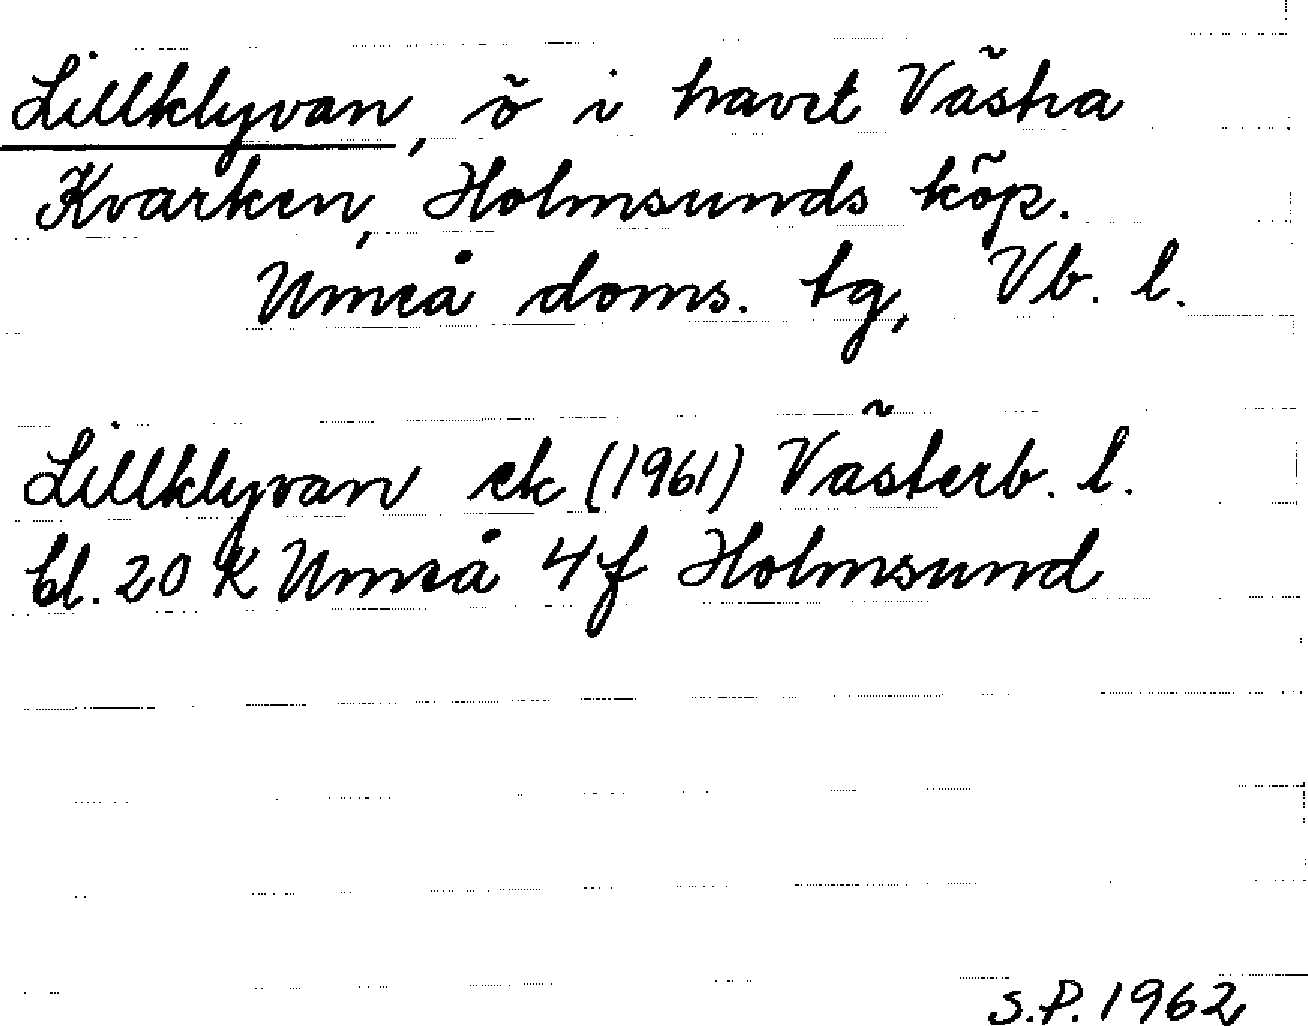 Lillklyvan, ö i havet Västra
Kvarken, Holmsunds köp.
Umeå doms. tg, Vb. l.
Lillklyvan ek (1961) Västerb. l.
bl. 20 K Umeå 4f Holmsund
S.P. 1962